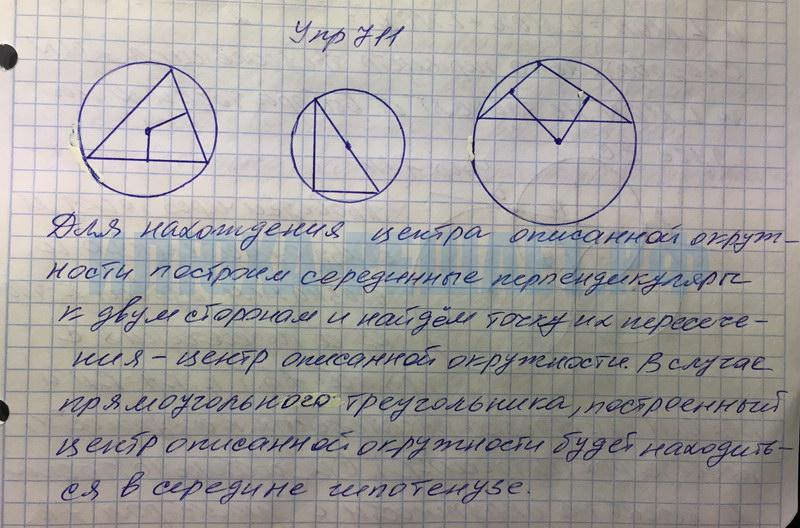 Упр 711
Для нахождения центра описанной окруж-
ности построим серединные перпендикуляры
к двум сторонам и найдём точку их пересече-
ния - центр описанной окружности. В случае
прямоугольного треугольника, построенный
центр описанной окружности будет находить-
ся в середине гипотенузе.